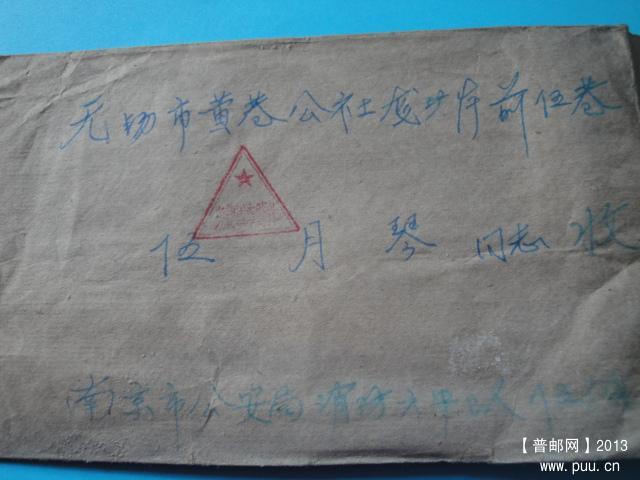 无锡市黄巷公社龙
前伍巷
伍月琴同志收
南京市公安局消防大中队伍
【普邮网】2013
www.puu.cn